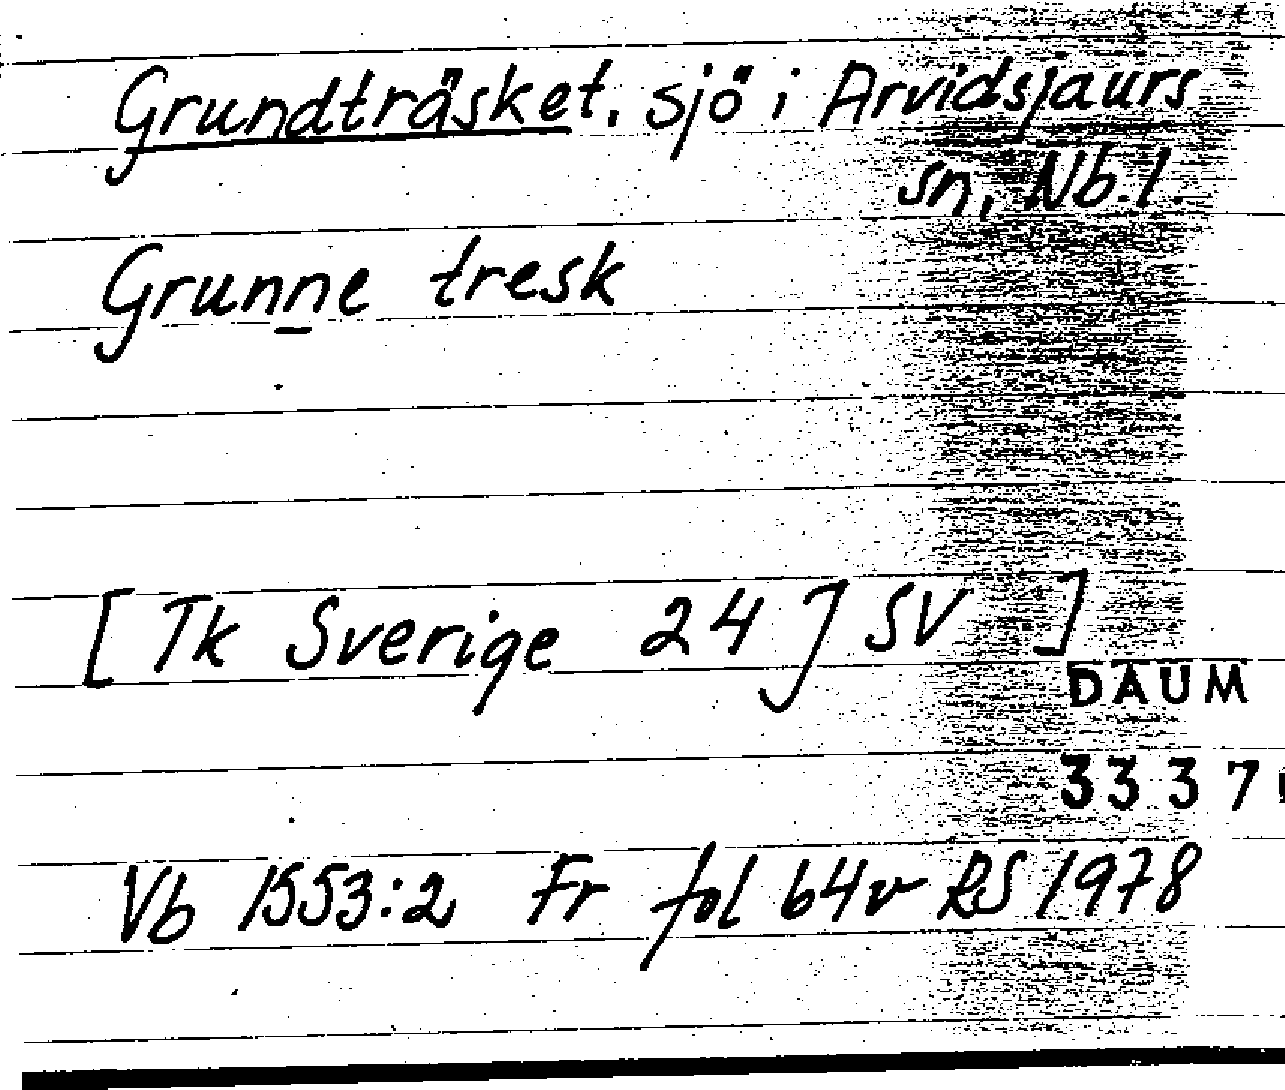 Grundträsket, sjö i Arvidsjaurs
sn, Nb.l.
Grunne tresk
[Tk Sverige 24 J SV ]
DAUM
3337
Vb 1553:2 Fr fol 64v RS 1978